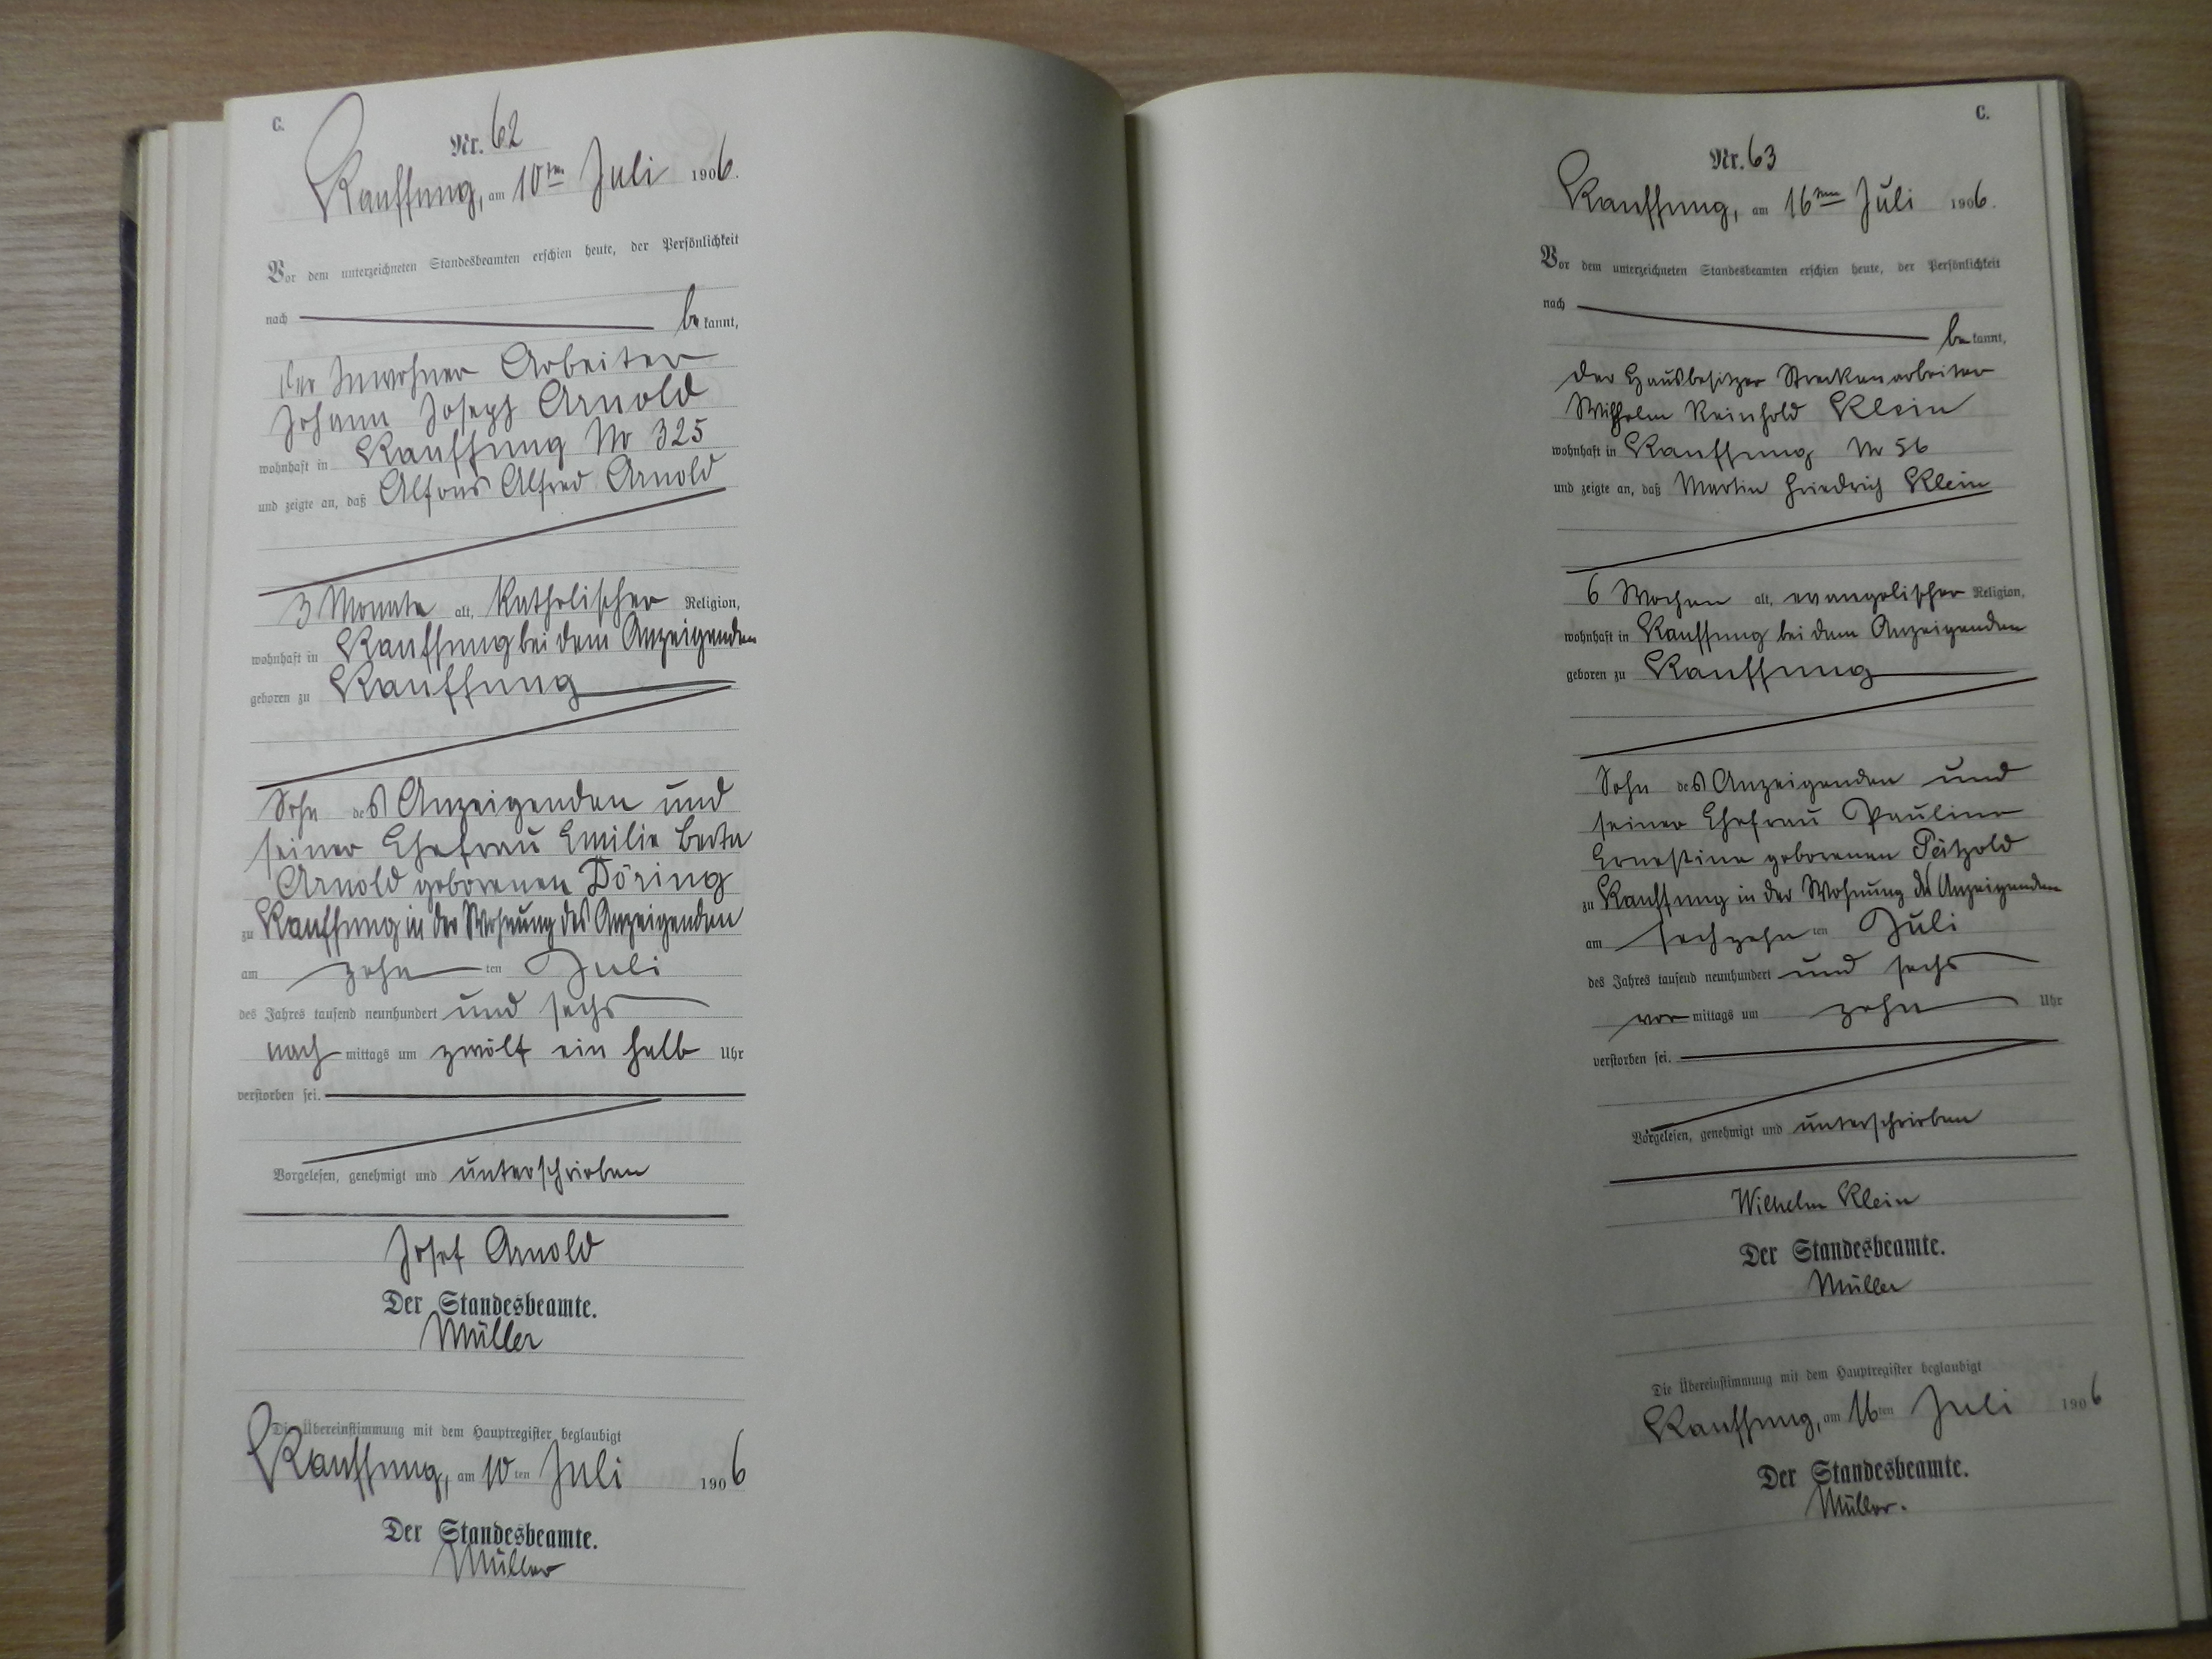 C.
Nr. 62
Kauffung, am 10ten Juli 1906.
Vor dem unterzeichneten Standesbeamten erschien heute, der Persönlichkeit
nach bekannt,
der Inwohner Arbeiter
Johann Joseph Arnold
wohnhaft in Kauffung No 325
und zeigte an, daß Alfons Alfred Arnold
3 Monate alt, katholischer Religion,
wohnhaft in Kauffung bei dem Anzeigenden
geboren zu Kauffung
Sohn des Anzeigenden und
seiner Ehefrau Emilie Berta
Arnold geborenen Döring
zu Kauffung in der Wohnung des Anzeigenden
am zehnten Juli
des Jahres tausend neunhundert und sechs
nachmittags um zwölf ein halb Uhr
verstorben sei.
Vorgelesen, genehmigt und unterschrieben
Josef Arnold
Der Standesbeamte.
Müller
Die Übereinstimmung mit dem Hauptregister beglaubigt
Kauffung, am 10ten Juli 1906
Der Standesbeamte.
Müller
C.
Nr. 63
Kauffung, am 16ten Juli 1906.
Vor dem unterzeichneten Standesbeamten erschien heute, der Persönlichkeit
nach bekannt,
der Hausbesitzer Streckenarbeiter
Wilhelm Reinhold Klein
wohnhaft in Kauffung No 56
und zeigte an, daß Martin Friedrich Klein
6 Wochen alt, evangelischer Religion,
wohnhaft in Kauffung bei dem Anzeigenden
geboren zu Kauffung
Sohn des Anzeigenden und
seiner Ehefrau Pauline
Ernestine geborenen Pätzold
zu Kauffung in der Wohnung des Anzeigenden
am sechzehnten Juli
des Jahres tausend neunhundert und sechs
vormittags um zehn Uhr
verstorben sei.
Vorgelesen, genehmigt und unterschrieben
Wilhelm Klein
Der Standesbeamte.
Müller
Die Übereinstimmung mit dem Hauptregister beglaubigt
Kauffung, am 16ten Juli 1906
Der Standesbeamte.
Müller.